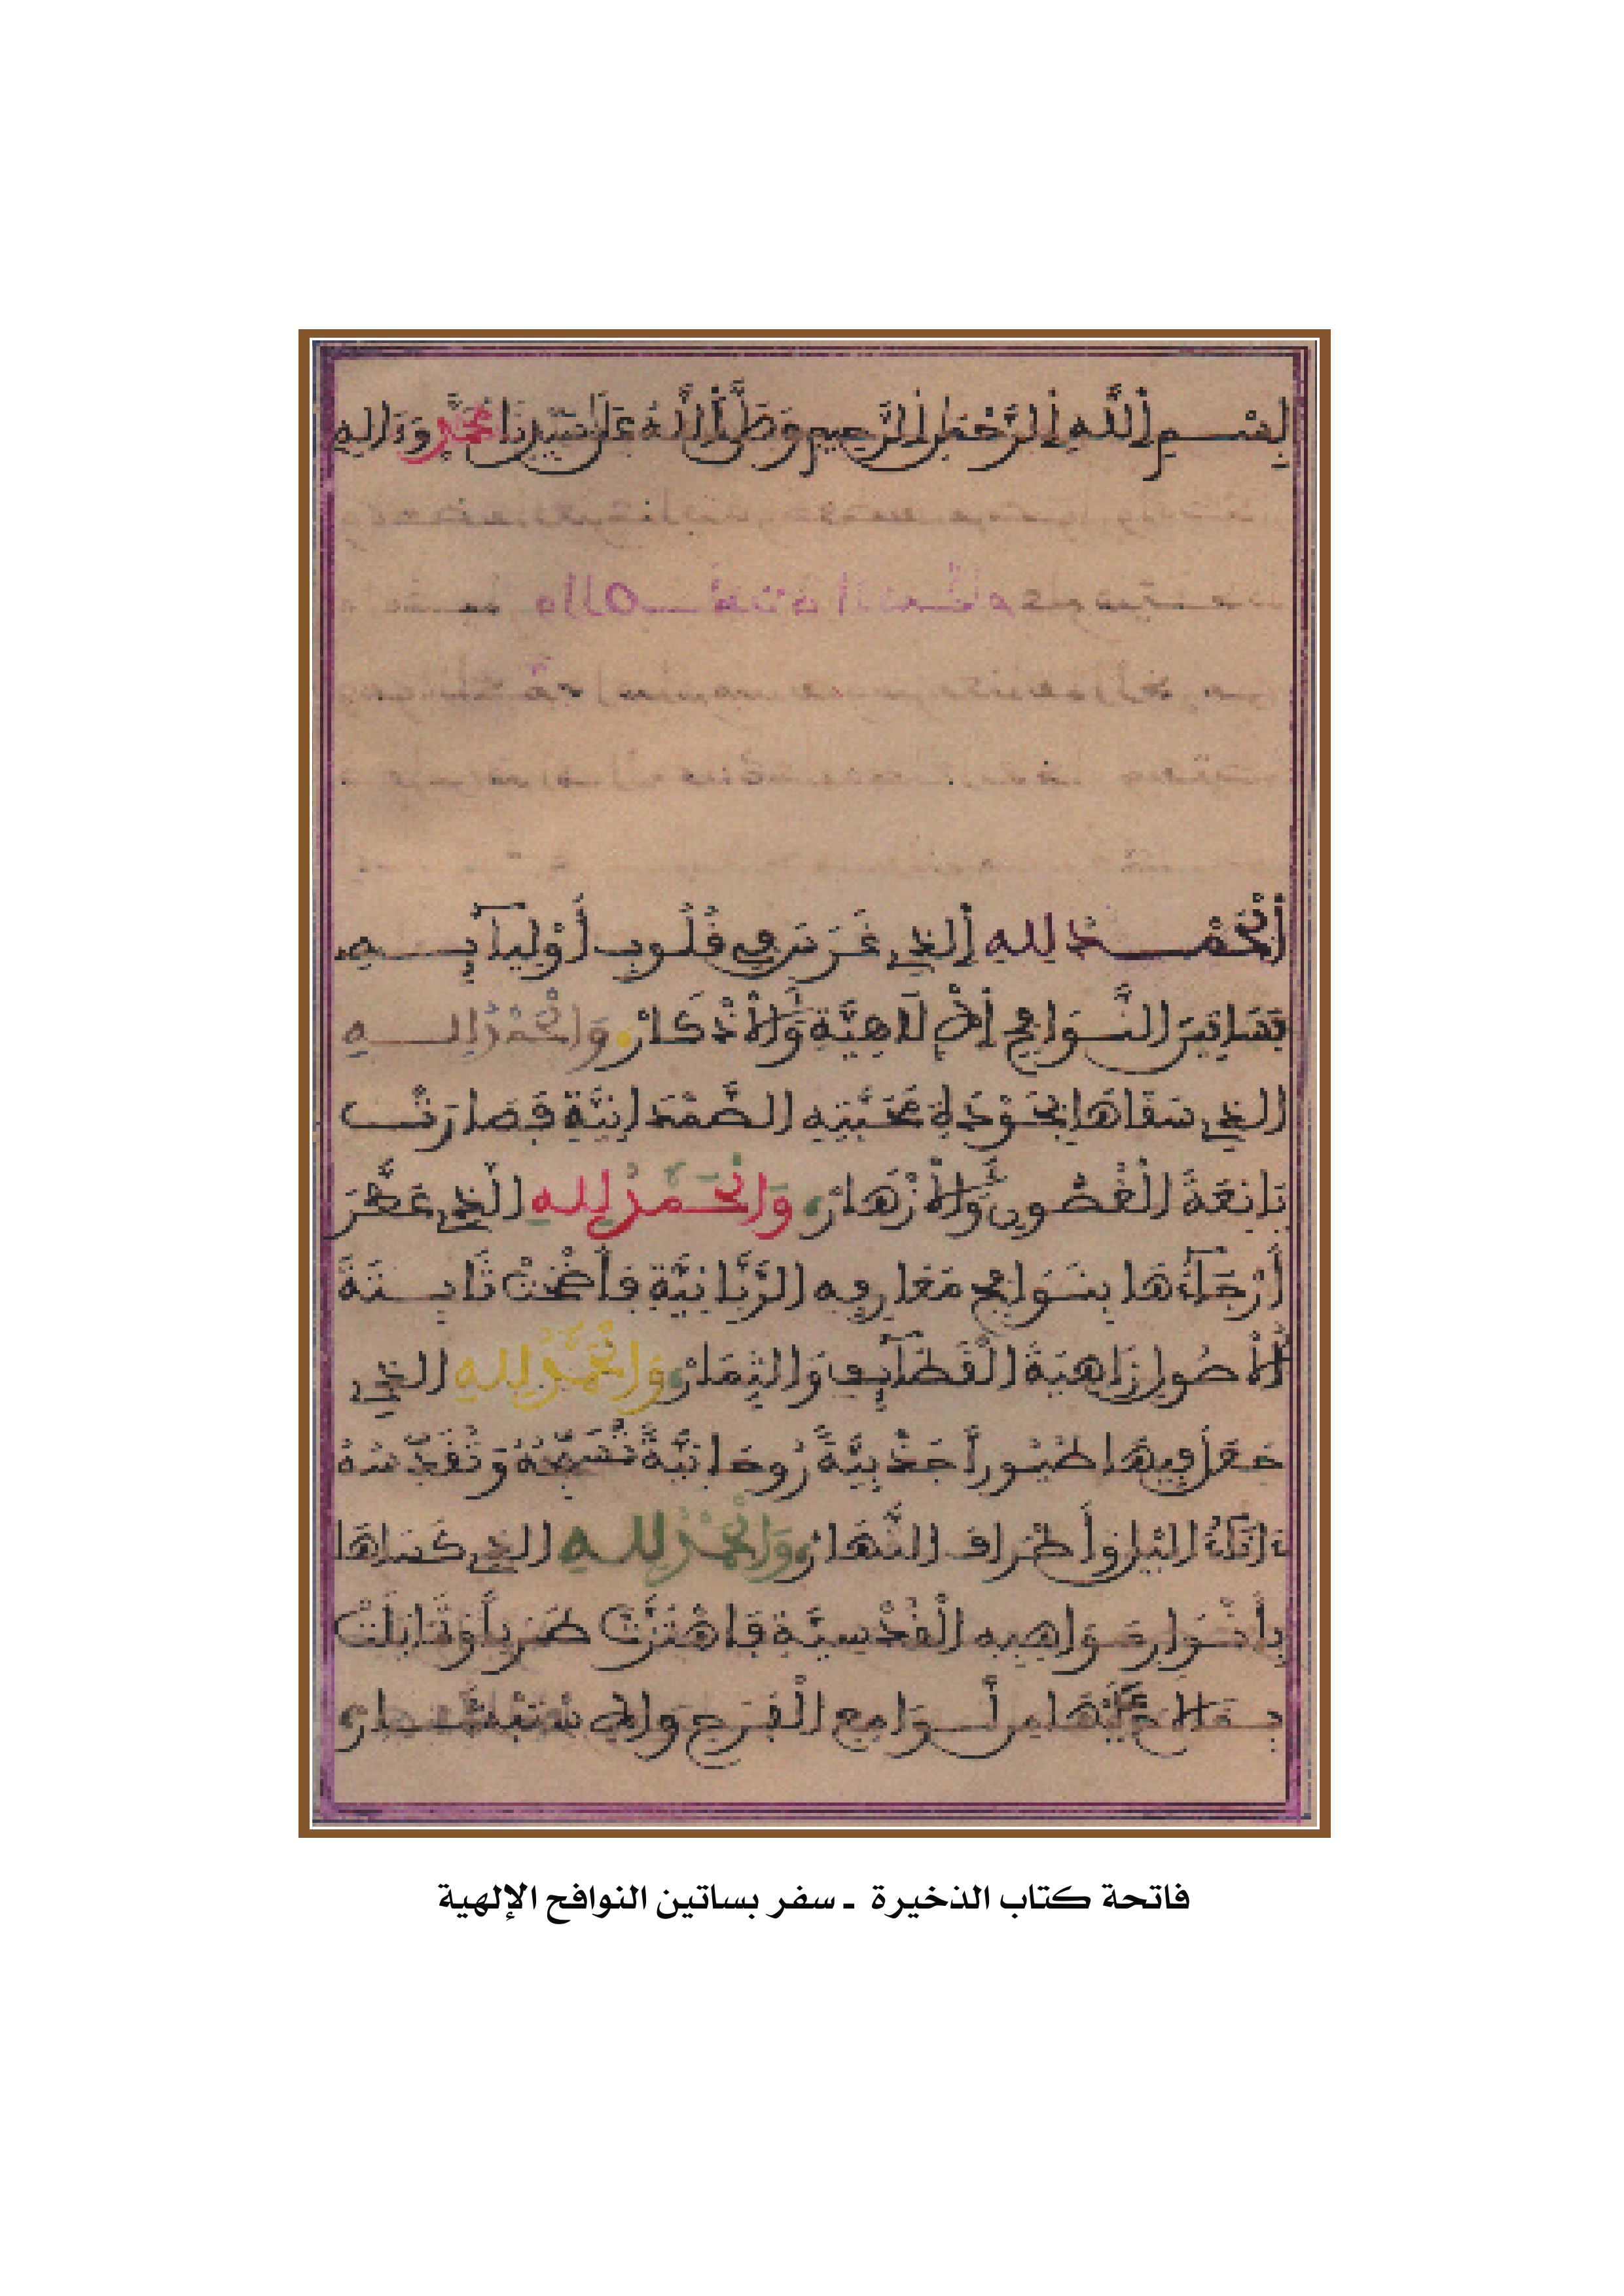 بِسْمِ اللَّهِ الرَّحْمَنِ الرَّحِيمِ وَصَلَّى اللَّهُ عَلَى سَيِّدِنَا مُحَمَّدٍ وَءَالِهِ
أَلْحَمْدُ لِلهِ الذِي غَرَسَ فِي قُلُوبِ أَوْلِيَآئِهِ
بَسَاتِينَ النَّوَافِحِ الإِلَاهِيَّةِ وَالْأَذْكَارِ، وَالْحَمْدُ لِلهِ
الذِي سَقَاهَا بِجَوْدَةِ مَحَبَّتِهِ الصَّمَدَانِيَّةِ فَصَارَتْ
يَانِعَةَ الْغُصُونِ وَالْأَزْهَارِ، وَالْحَمْدُ لِلهِ الذِي عَطَّرَ
أَرْجَآءَهَا بِنَوَافِحِ مَعَارِفِهِ الرَّبَّانِيَّةِ فَأَضْحَتْ ثَابِتَةَ
الْأُصُولِ زَاهِيَةَ الْقَطَآئِفِ وَالثِّمَارِ، وَالْحَمْدُ لِلهِ الذِي
جَعَلَ فِيهَا طُيُوراً جَذْبِيَّةً رُوحَانِيَّةً تُسَبِّحُهُ وَتُقَدِّسُهُ
ءَانَآءَ الليْلِ وَأَطْرَافَ النَّهَارِ، وَالْحَمْدُ لِلهِ الذِي كَسَاهَا
بِأَنْوَارِ مَوَاهِبِهِ الْقُدْسِيَّةِ فَاهْتَزَّتْ طَرَباً وَتَمَايَلَتْ
بِمَا لَاحَ عَلَيْهَا مِن لَوَامِعِ الْفَرَحِ وَالِاسْتِبْشَارِ،
فاتحة كتاب الذخيرة ـ سفر بساتين النوافح الإلهية